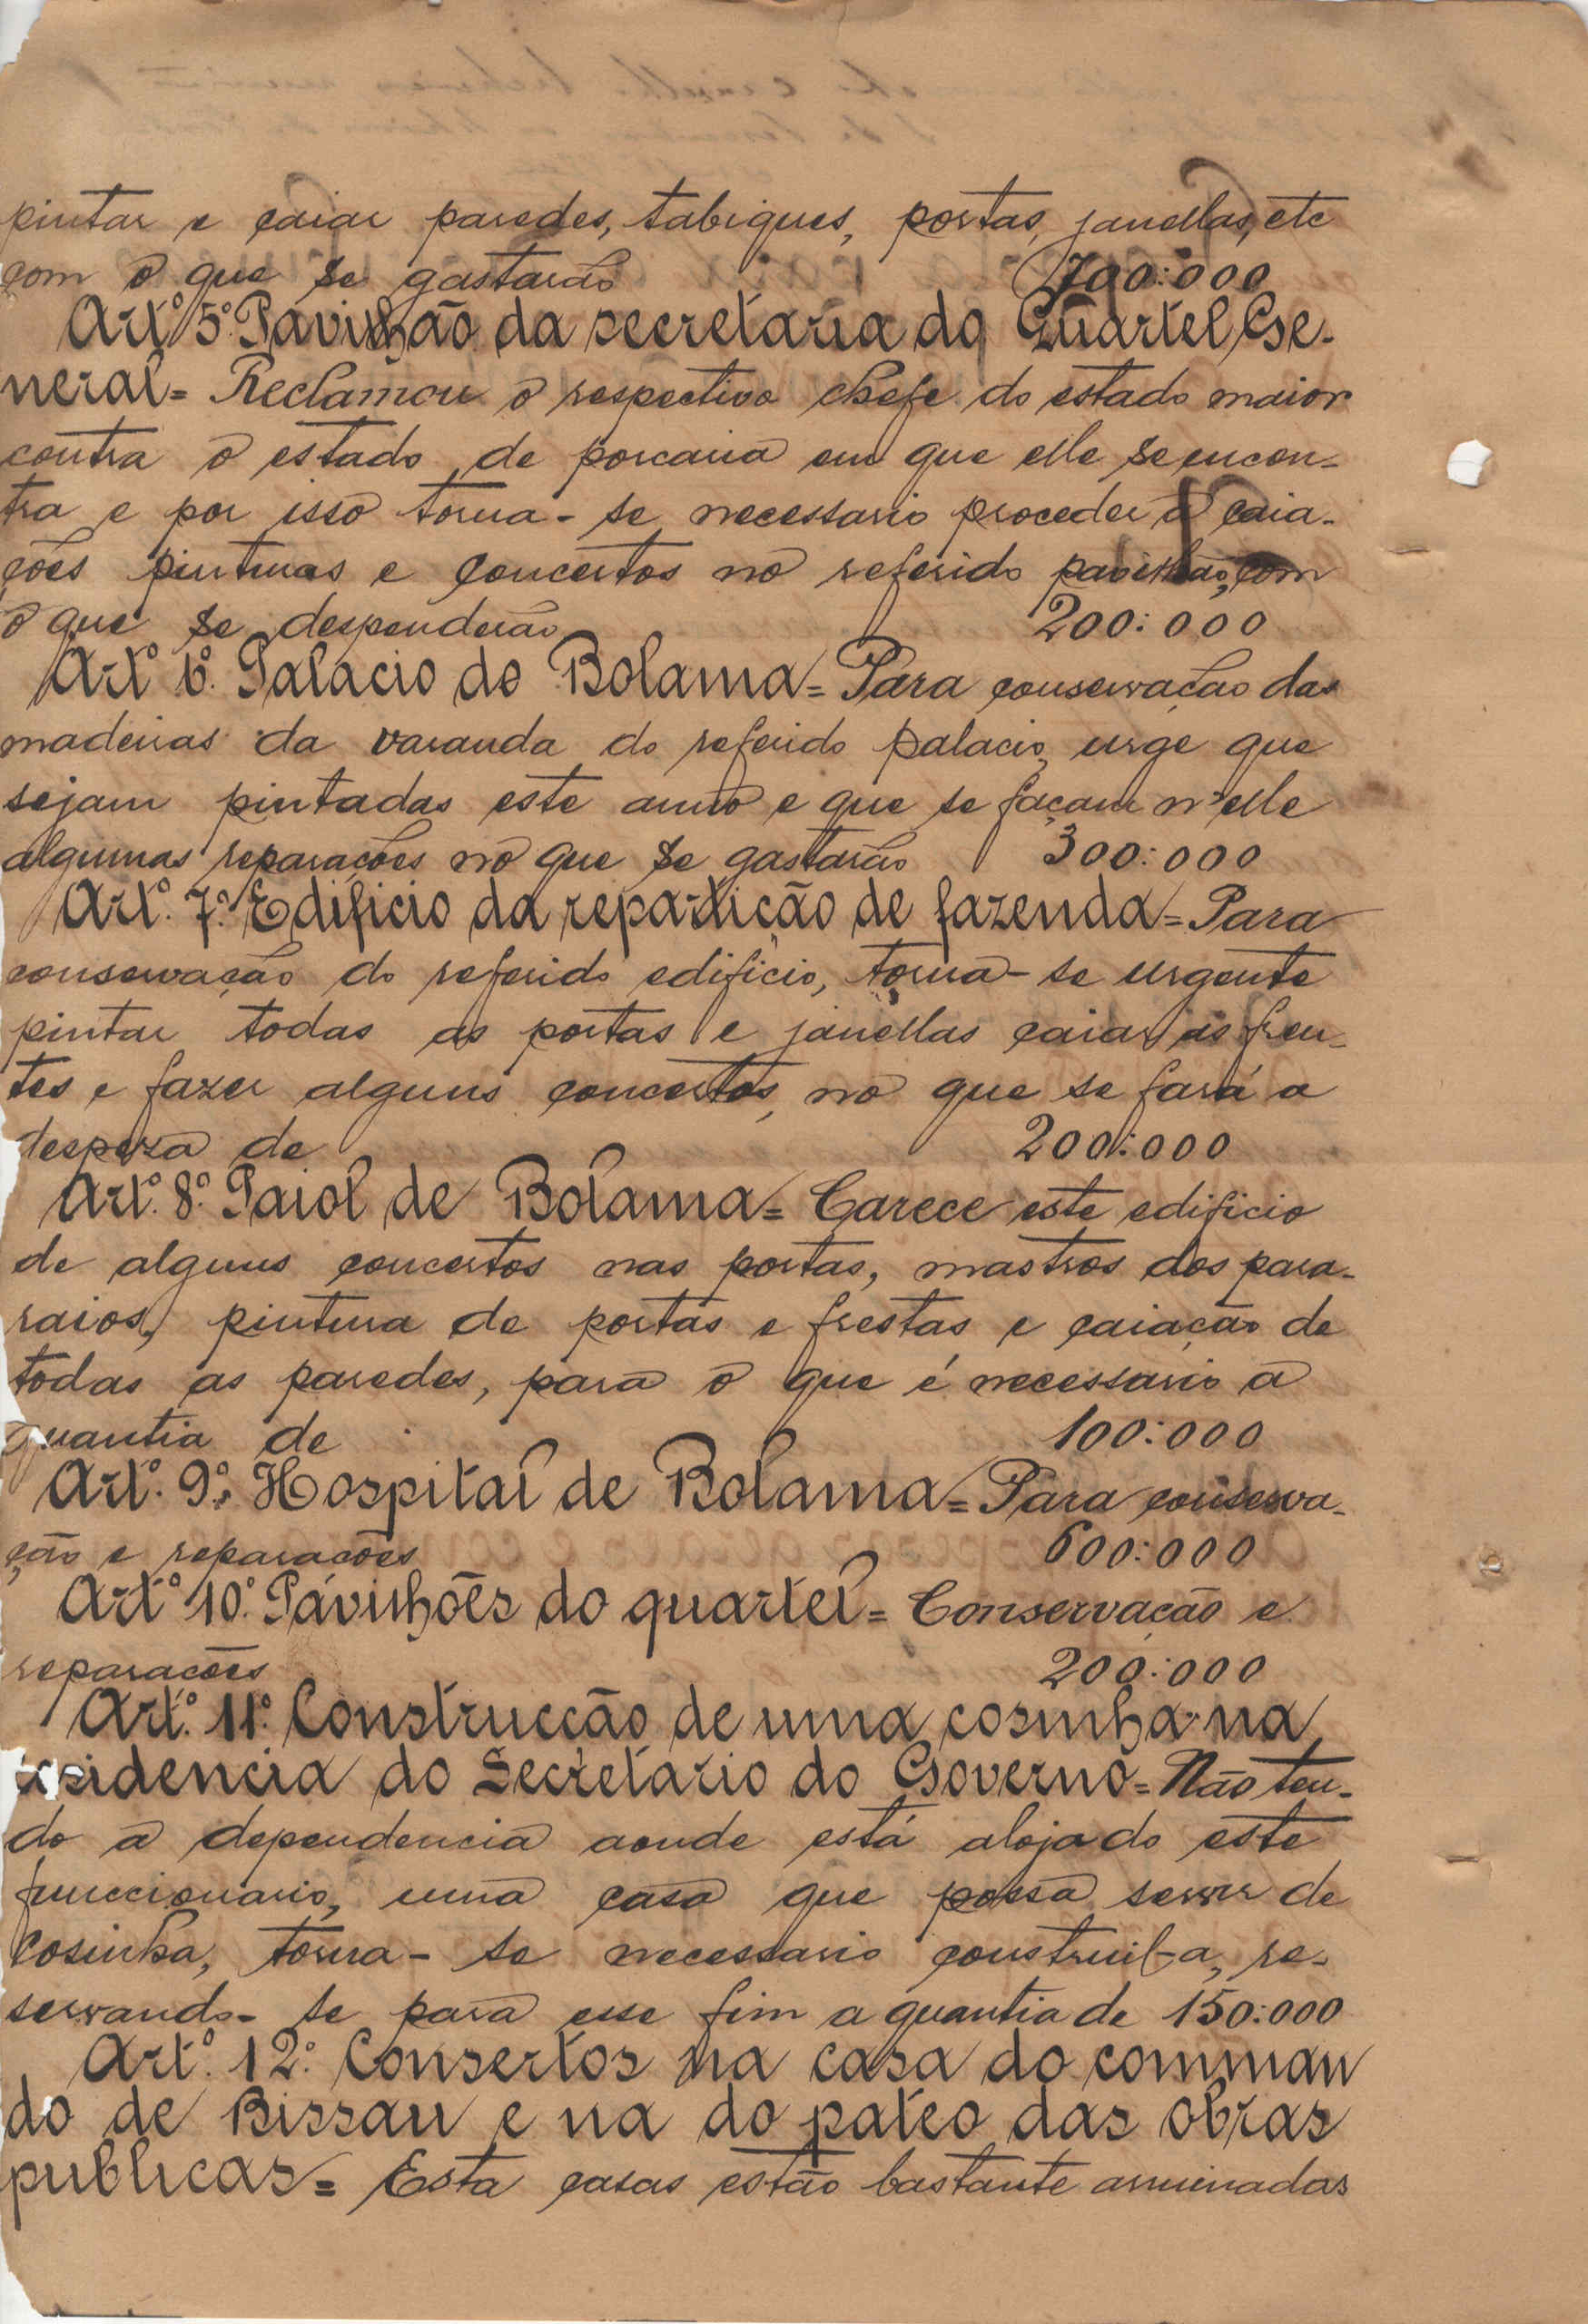 pintar e caiar paredes, tabiques, portas, janellas, etc
com o que se gastarão 700:000
Artº. 5º. Pavilhão da secretaria do Quartel Ge-
neral = Reclamou o respectivo chefe do estado maior
contra o estado de porcaria em que elle se encon-
tra e por isso torna-se necessario proceder a caia-
ções pinturas e concertos no referido pavilhão, com
o que se despenderão 200:000
Artº 6º. Palacio de Bolama = Para conservação das
madeiras da varanda do referido palacio, urge que
sejam pintadas este anno e que se façam n'elle
algumas reparações no que se gastarão 300:000
Artº. 7º. Edificio da repartição de fazenda = Para
conservação do referido edificio, torna-se urgente
pintar todas as portas e janellas caiar as fren-
tes e fazer alguns concertos, no que se fará a
despeza de 200:000
Artº. 8º. Paiol de Bolama = Carece este edificio
de alguns concertos nas portas, mastros dos para-
raios, pintura de portas e frestas e caiação de
todas as paredes, para o que é necessario a
quantia de 100:000
Artº. 9º. Hospital de Bolama = Para conserva-
ção e reparações 600:000
Artº 10º. Pavilhões do quartel = Conservação e
reparações 200:000
Artº. 11º. Construcção de uma cosinha na
residencia do Secretario do Governo = Não ten-
do a dependencia aonde está alojado este
funccionario, uma casa que possa servir de
cosinha, torna-se necessario construil-a, re-
servando-se para esse fim a quantia de 150:000
Artº. 12º. Consertos na casa do comman
do de Bissau e na do pateo das obras
publicas = Esta casas estão bastante arruinadas